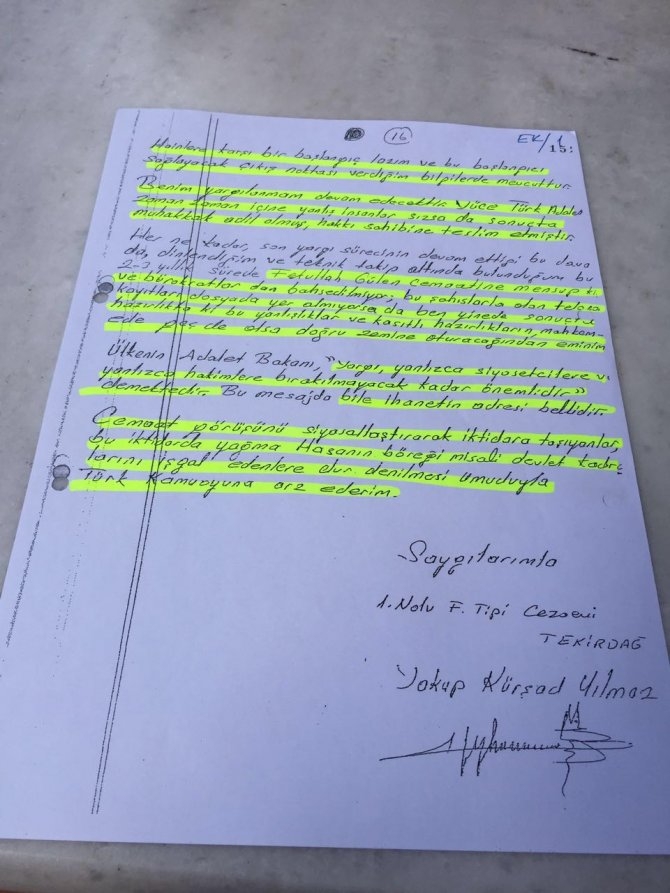 16
EK/1
15:
Hainlere karşı bir başlangıç lazım ve bu başlangıcı
sağlayacak çıkış noktası verdiğim bilgilerde mevcuttur.
Benim yargılanmam devam edecektir. Yüce Türk Adalet
zaman zaman içine yanlış insanlar sızsa da sonuçta
muhakkak adil olmuş, hakkı sahibine teslim etmiştir.
Her ne kadar, son yargı sürecinin devam ettiği bu dava
da, dinlendiğim ve teknik takip altında bulunduğum bu
yıllık sürede Fetullah Gülen Cemaatine mensup
ve bürokratlar dan bahsedilmiyor, bu şahıslarla olan
kayıtları dosyada yer almıyorsa da ben yinede sonuçta
hazırlıkta ki bu yanlışlık ve kasıtlı hazırlıkların, mahkem-
ede geçde olsa doğru zemine oturacağından eminim.
Ülkenin Adalet Bakanı, "Yargı, yanlızca siyasetcilere v
yanlızca hakimlere bırakılmayacak kadar önemlidir"
demektedir. Bu mesajda bile ihanetin adresi bellidir.
Cemaat görüşünü siyasallaştırarak iktidara taşıyanlar,
bu iktidarda yağma Hasanın böreği misali devlet kadro
larını işgal edenlere dur denilmesi ümuduyla
Türk Kamuoyuna arz ederim.
Saygılarımla
1. Nolu F. Tipi Cezaevi
TEKİRDAĞ
Yakup Kürşad Yılmaz